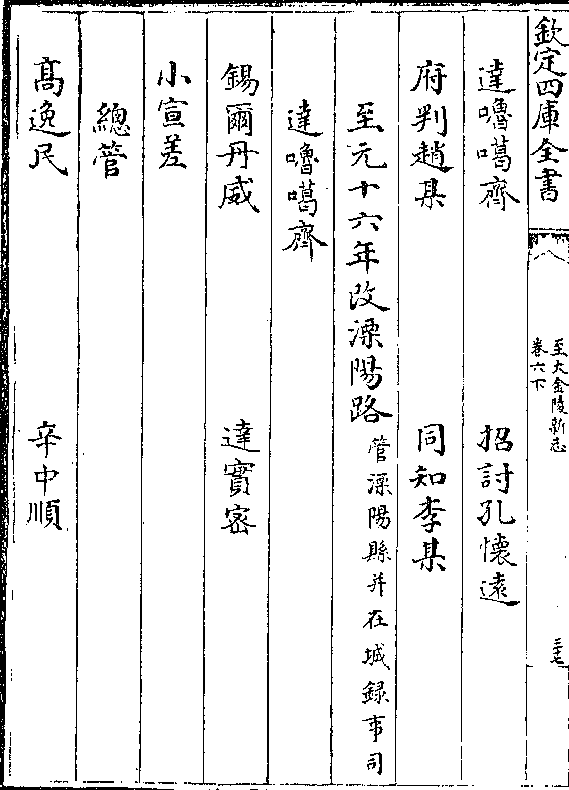 欽定四庫全書
至大金陵新志
卷六下
三七
達嚕噶齊 招討孔懷遠
府判趙某 同知李某
至元十六年改溧陽路管溧陽縣并在城録事司
達嚕噶齊
錫爾丹威 達實密
小宣差
總管
髙逸民 辛中順